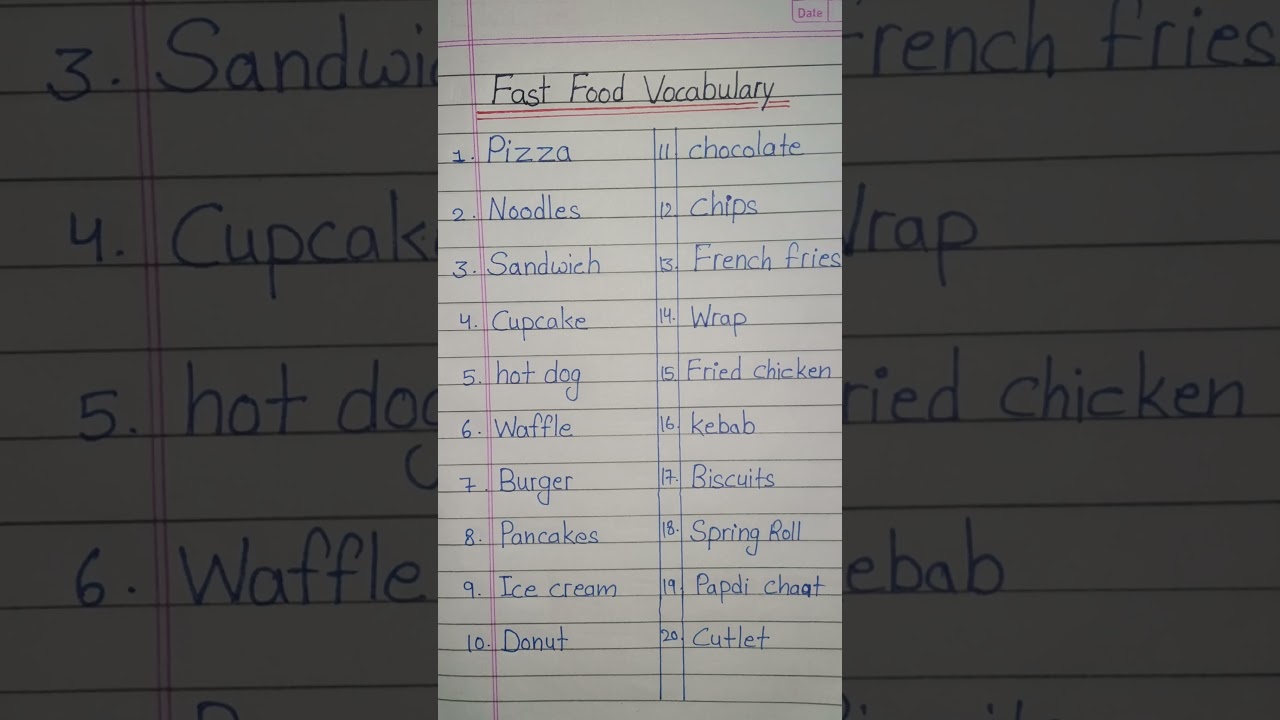 Date
Fast Food Vocabulary
1. Pizza
2. Noodles
3. Sandwich
4. Cupcake
5. hot dog
6. Waffle
7. Burger
8. Pancakes
9. Ice cream
10. Donut
11 chocolate
12. Chips
13. French fries
14. Wrap
15. Fried chicken
16. kebab
17. Biscuits
18. Spring Roll
19. Papdi chaat
20. Cutlet